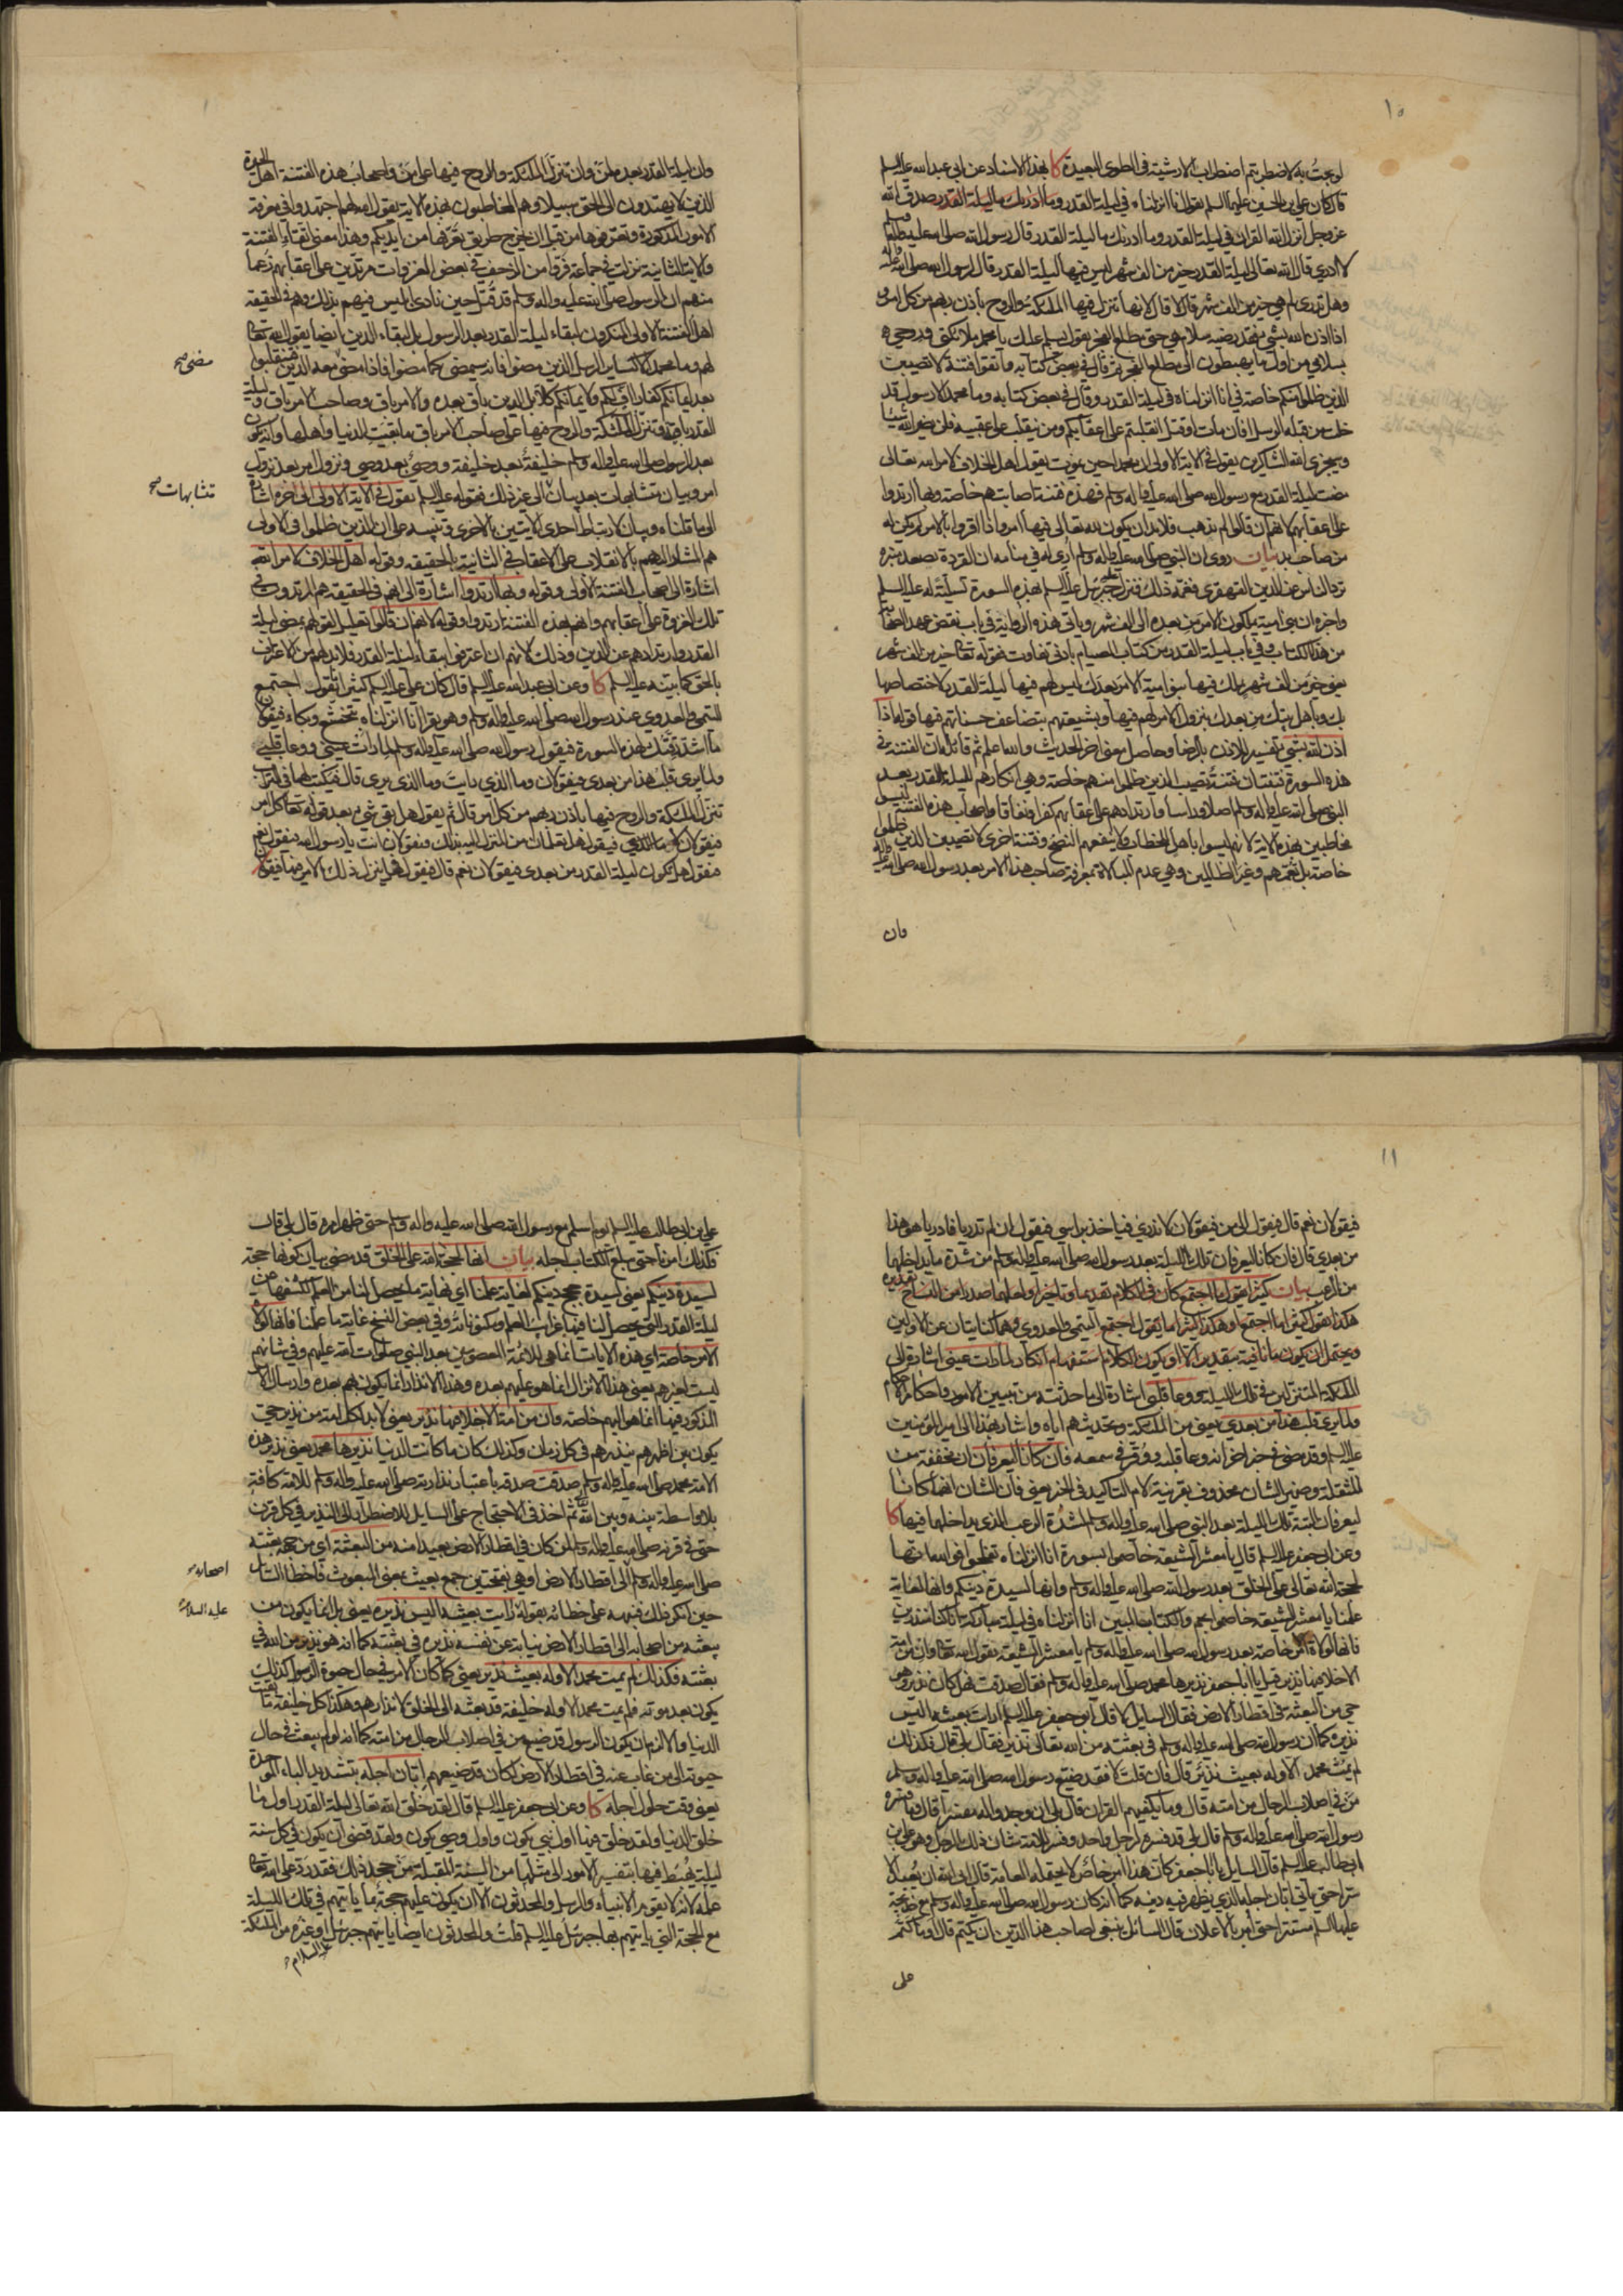 ١٠
لو بحت به لاضطربتم اضطراب الارشية في الطوى البعيدة كا بهذا الاسناد عن ابي عبد الله عليه السلم
قال كان علي بن الحسين عليهما السلم يقول انا انزلناه في ليلة القدر وما ادريك ما ليلة القدر صدق الله
عز وجل انزل الله القران في ليلة القدر وما ادريك ما ليلة القدر قال رسول الله صلى الله عليه واله وسلم
لا ادري قال الله تعالى ليلة القدر خير من الف شهر ليس فيها ليلة القدر قال لرسول الله صلى الله عليه واله
وهل تدري لم هي خير من الف شهر قال لا قال لانها تنزل فيها الملئكة والروح باذن ربهم من كل امر و
اذا اذن الله بشئ فقد رضيه سلام هي حتى مطلع الفجر يقول يسلم عليك يا محمد ملائكتي وروحي
بسلامي من اول ما يهبطون الى مطلع الفجر ثم قال في بعض كتابه واتقوا فتنة لا تصيبن
الذين ظلموا منكم خاصة في انا انزلناه في ليلة القدر وقال في بعض كتابه وما محمد الا رسول قد
خلت من قبله الرسل افان مات او قتل انقلبتم على اعقابكم ومن ينقلب على عقبيه فلن يضر الله شيئا
وسيجزي الله الشاكرين يقول في الاية الاولى ان محمدا حين يموت يقول اهل الخلاف لامر الله تعالى
مضت ليلة القدر مع رسول الله صلى الله عليه واله وسلم فهذه فتنة اصابتهم خاصة وبها ارتدوا
على اعقابهم لانهم ان قالوا لم تذهب فلا بد ان يكون لله تعالى فيها امر واذا اقروا بالامر لم يكن له
من صاحب بد بيان روى ان النبي صلى الله عليه واله وسلم اري له في منامه ان القردة تصعد منبره
ترد الناس عن الدين القهقرى فغمه ذلك فنزل جبرئيل عليه السلم بهذه السورة تسلية له عليه السلم
واخره ان بني امية يملكون الامر من بعده الى الف شهر وياتي هذه الرواية في باب نقض عهد الصحابة
من هذا الكتاب وفي باب ليلة القدر من كتاب الصيام بادنى تفاوت فقوله تعالى خير من الف شهر
يعني خير من الف شهر يملك فيها بنو امية الامر بعدك ليس لهم فيها ليلة القدر لاختصاصها
بك وباهل بيتك من بعدك بنزول الامر لهم فيها وبشيعتهم بتضاعف حسناتهم فيها قوله اذا
اذن الله بشئ تفسير للاذن بالرضا وحاصل معنى اخر الحديث والله اعلم ثم قائله ان الفتنة في
هذه السورة فتنتان فتنة تصيب الذين ظلموا منهم خاصة وهي انكارهم لليلة القدر بعد
النبي صلى الله عليه واله وسلم اصلا وراسا وارتدادهم على اعقابهم كفرا ونفاقا واصحاب هذه الفتنة ليس
مخاطبين بهذه الاية لانهم ليسوا باهل للخطاب ولا ينفعهم النصح وفتنة اخرى لا تصيبن الذين ظلموا
خاصة بل تعمهم وغير الظالمين وهي عدم المبالاة بمعرفة صاحب هذا الامر بعد رسول الله صلى الله عليه واله
وان
وان ليلة القدر بعده لمن وان تنزل الملئكة والروح فيها على من واصحاب هذه الفتنة اهل الحيرة
الذين لا يهتدون الى الحق سبيلا وهم المخاطبون بهذه الاية يقول الله لهم اجتهدوا في معرفة
الامور المذكورة وتعرفوها من قبل ان يخرج طريق تعرفها من ايديكم وهذا معنى اتقاء الفتنة
والاية الثانية نزلت في جماعة فروا من الزحف في بعض الغزوات مرتدين على اعقابهم زعما
منهم ان الرسول صلى الله عليه واله وسلم قد قتل حين نادى ابليس فيهم بذلك وهم في الحقيقة
اهل الفتنة الاولى المنكرون لبقاء ليلة القدر بعد الرسول بل لبقاء الدين ايضا يقول الله تعالى
لهم وما محمد الا كساير الرسل الذين مضوا فانه سيمضي كما مضوا فاذا مضى معه الدين فتنقلبوا
مضى صح
بعد ايمانكم كفارا فيكم ولا ايمانكم كلا بل الدين باق بعده والامر باق وصاحب الامر باق وليلة
القدر باقية وتنزل الملئكة والروح فيها على صاحب الامر باق ما بقيت الدنيا واهلها وانه يكون
بعد الرسول صلى الله عليه واله وسلم خليفة بعد خليفة ووصي بعد وصي ونزول امر بعد نزول
امر وبيان متشابهات بعد بيان الى غير ذلك فقوله عليه السلم يقول في الاية الاولى الى اخره اشارة
متشابهات صح
الى ما قلناه وبيان لارتباط احدى الايتين بالاخرى وتنبيه على ان الذين ظلموا في الاولى
هم المشار اليهم بالانقلاب على الاعقاب في الثانية بالحقيقة وقوله اهل الخلاف لامر الله
اشارة الى اصحاب الفتنة الاولى وقوله وبها ارتدوا اشارة الى انهم في الحقيقة هم المرتدون في
تلك الغزوة على اعقابهم وانهم بهذه الفتنة ارتدوا وقوله لانهم ان قالوا تعليل لقولهم بمضي ليلة
القدر وارتدادهم عن الدين وذلك لانهم ان اعترفوا ببقاء ليلة القدر فلا بد لهم من الاعتراف
بالحق كما بينه عليه السلم كا وعن ابي عبد الله عليه السلم قال كان علي عليه السلم كثيرا يقول اجتمع
التيمي والعدوي عند رسول الله صلى الله عليه واله وسلم وهو يقرا انا انزلناه بتخشع وبكاء فيقولان
ما اشد رقتك لهذه السورة فيقول رسول الله صلى الله عليه واله وسلم لما رات عيني ووعا قلبي
ولما يرى قلب هذا من بعدي فيقولان وما الذي رايت وما الذي يرى قال فيكتب لهما في التراب
تنزل الملئكة والروح فيها باذن ربهم من كل امر قال ثم يقول هل بقي شئ بعد قوله تعالى كل امر
فيقولان لا فيقول هل تعلمان من المنزل اليه بذلك فيقولان انت يا رسول الله فيقول نعم
فيقول هل تكون ليلة القدر من بعدي فيقولان نعم قال فيقول فهل ينزل ذلك الامر فيها فيقولان
١١
فيقولان نعم قال فيقول الى من فيقولان لا ندري فياخذ براسي فيقول ان لم تدريا فادريا هو هذا
من بعدي قال فان كانا ليعرفان تلك الليلة بعد رسول الله صلى الله عليه واله وسلم من شدة ما يداخلهما
من الرعب بيان كثيرا يقول ما اجتمع كان في الكلام تقديما وتاخيرا ولعلهما صدرا من النساخ تقديره
هكذا يقول كثيرا ما اجتمع او هكذا كثيرا ما يقول اجتمع التيمي والعدوي وهما كنايتان عن الاولين
ويحتمل ان يكون ما نافية بتقدير الا او يكون الكلام استفهام انكار لما رات عيني اشارة الى
الملئكة المتنزلين في تلك الليلة ووعا قلبي اشارة الى ما حدثته من تبيين الامور واحكام الاحكام
ولما يرى قلب هذا من بعدي يعني من الملئكة وتحديثهم اياه واشار بهذا الى امير المؤمنين
عليه السلم وقد مضى في خبر اخر انه وعا قلبه ووقر في سمعه فان كانا ليعرفان ان مخففة من
المثقلة وضمير الشان محذوف بقرينة لام التاكيد في الخبر يعني فان الشان انهما كانا
ليعرفان البتة تلك الليلة بعد النبي صلى الله عليه واله وسلم لشدة الرعب الذي يداخلهما فيها كا
وعن ابي جعفر عليه السلم قال يا معشر الشيعة خاصموا بسورة انا انزلناه تفلجوا فوالله انها
لحجة الله تعالى على الخلق بعد رسول الله صلى الله عليه واله وسلم وانها لسيدة دينكم وانها لغاية
علمنا يا معشر الشيعة خاصموا بحم والكتاب المبين انا انزلناه في ليلة مباركة انا كنا منذرين
فانها لولاة الامر خاصة بعد رسول الله صلى الله عليه واله وسلم يا معشر الشيعة يقول الله تعالى وان من امة
الا خلا فيها نذير قيل يا ابا جعفر نذيرها محمد صلى الله عليه واله وسلم فقال صدقت فهل كان نذير وهو
حي من البعثة في اقطار الارض فقال السايل لا قال ابو جعفر عليه السلم ارايت بعيثه اليس
نذيره كما ان رسول الله صلى الله عليه واله وسلم في بعثته من الله تعالى نذير فقال بلى قال فكذلك
لم يمت محمد الا وله بعيث نذير قال فان قلت لا فقد ضيع رسول الله صلى الله عليه واله وسلم
من في اصلاب الرجال من امته قال وما يكفيهم القران قال بلى ان وجدوا له مفسرا قال وما فسره
رسول الله صلى الله عليه واله وسلم قال بلى قد فسره لرجل واحد وفسر للامة شان ذلك الرجل وهو علي بن
ابي طالب عليه السلم قال السايل يا ابا جعفر كان هذا امر خاص لا يحتمله العامة قال ابى الله ان يعبد الا
سرا حتى ياتي ابان اجله الذي يظهر فيه دينه كما انه كان رسول الله صلى الله عليه واله وسلم مع خديجة
عليها السلم مستترا حتى امر بالاعلان قال السائل ينبغي لصاحب هذا الدين ان يكتم قال او ما كتم
على
علي بن ابي طالب عليه السلم يوم اسلم مع رسول الله صلى الله عليه واله وسلم حتى ظهر امره قال بلى قال
فكذلك امرنا حتى يبلغ الكتاب اجله بيان انها لحجة الله على الخلق قد مضى بيان كونها حجة
لسيدة دينكم يعني لسيدة حجج دينكم لغاية علمنا اي نهاية ما يحصل لنا من العلم لكشفها عن
ليلة القدر التي يحصل لنا فيها غرايب العلم ومكنوناته وفي بعض النسخ غاية ما علمنا فانها لولاة
الامر خاصة اي هذه الايات انما هي للائمة المعصومين بعد النبي صلوات الله عليهم وفي شانهم
ليست لغيرهم يعني هذا الانزال انما هو عليهم بعده وهذا الانذار انما يكون بهم بعده وارسال الامر
المذكور فيها انما هو اليهم خاصة وان من امة الا خلا فيها نذير يعني لا بد لكل امة من نذير حي
يكون بين اظهرهم ينذرهم في كل زمان وكذلك كان ما كانت الدنيا نذيرها محمد يعني نذير هذه
الامة محمد صلى الله عليه واله وسلم صدقت صدقه باعتبار نذارته صلى الله عليه واله وسلم للامة كافة
بلا واسطة بينه وبين الله ثم اخذ في الاحتجاج على السايل للاضطرار الى النذير في كل قرن
حتى في قرنه صلى الله عليه واله وسلم لمن كان في اقطار الارض بعيدا منه من البعثة اي من جهة بعثته
صلى الله عليه واله وسلم الى اقطار الارض او هي بفتحتين جمع بعيث بمعنى المبعوث فاخطا السائل
اصحابه
حين انكر ذلك فنبهه على خطائه بقوله ارايت بعيثه اليس نذيره يعني بل انما يكون من
عليه السلام
بعثه من اصحابه الى اقطار الارض نيابة عن نفسه نذيره في بعثته كما انه هو نذير من الله في
بعثته فكذلك لم يمت محمد الا وله بعيث نذير يعني كما كان الامر في حال حيوة الرسول كذلك
يكون بعد موته فلم يمت محمد الا وله خليفة قد بعثه الى الخلق لانذارهم وهكذا كل خليفة ما بقيت
الدنيا والا لزم ان يكون الرسول قد ضيع من في اصلاب الرجال من امته كما انه لو لم يبعث في حال
حيوته الى من غاب عنه في اقطار الارض لكان قد ضيعهم ابان اجله بتشديد الباء الموحدة
يعني وقت حلول اجله كا وعن ابي جعفر عليه السلم قال لقد خلق الله تعالى ليلة القدر اول ما
خلق الدنيا ولقد خلق فيها اول نبي يكون واول وصي يكون ولقد قضى ان يكون في كل سنة
ليلة يهبط فيها بتفسير الامور الى مثلها من السنة المقبلة من جحد ذلك فقد رد على الله تعالى
علمه لانه لا يقوم الانبياء والرسل والمحدثون الا ان يكون عليهم حجة بما ياتيهم في تلك الليلة
مع الحجة التي ياتيهم بها جبرئيل عليه السلم قلت والمحدثون ايضا ياتيهم جبرئيل او غيره من الملئكة
عليه السلام